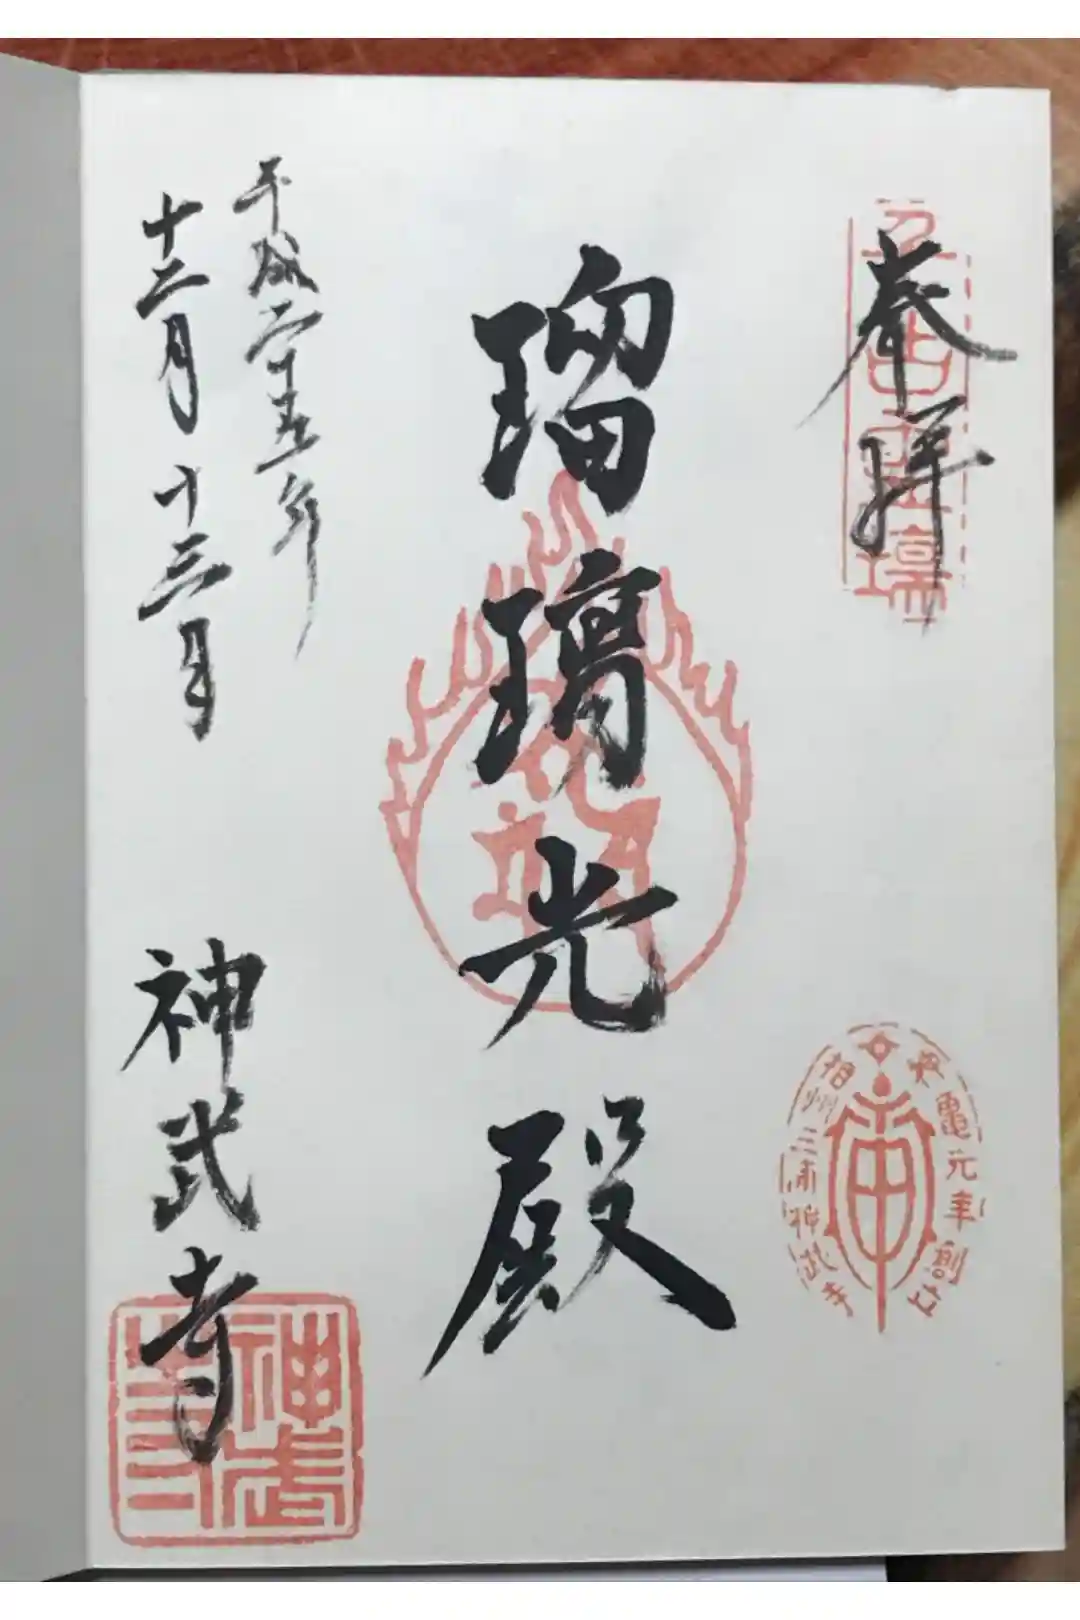 奉拝
瑠璃光殿
平成二十五年
十二月十三日
神武寺
神亀元年創立
相州三浦神武寺
神武寺